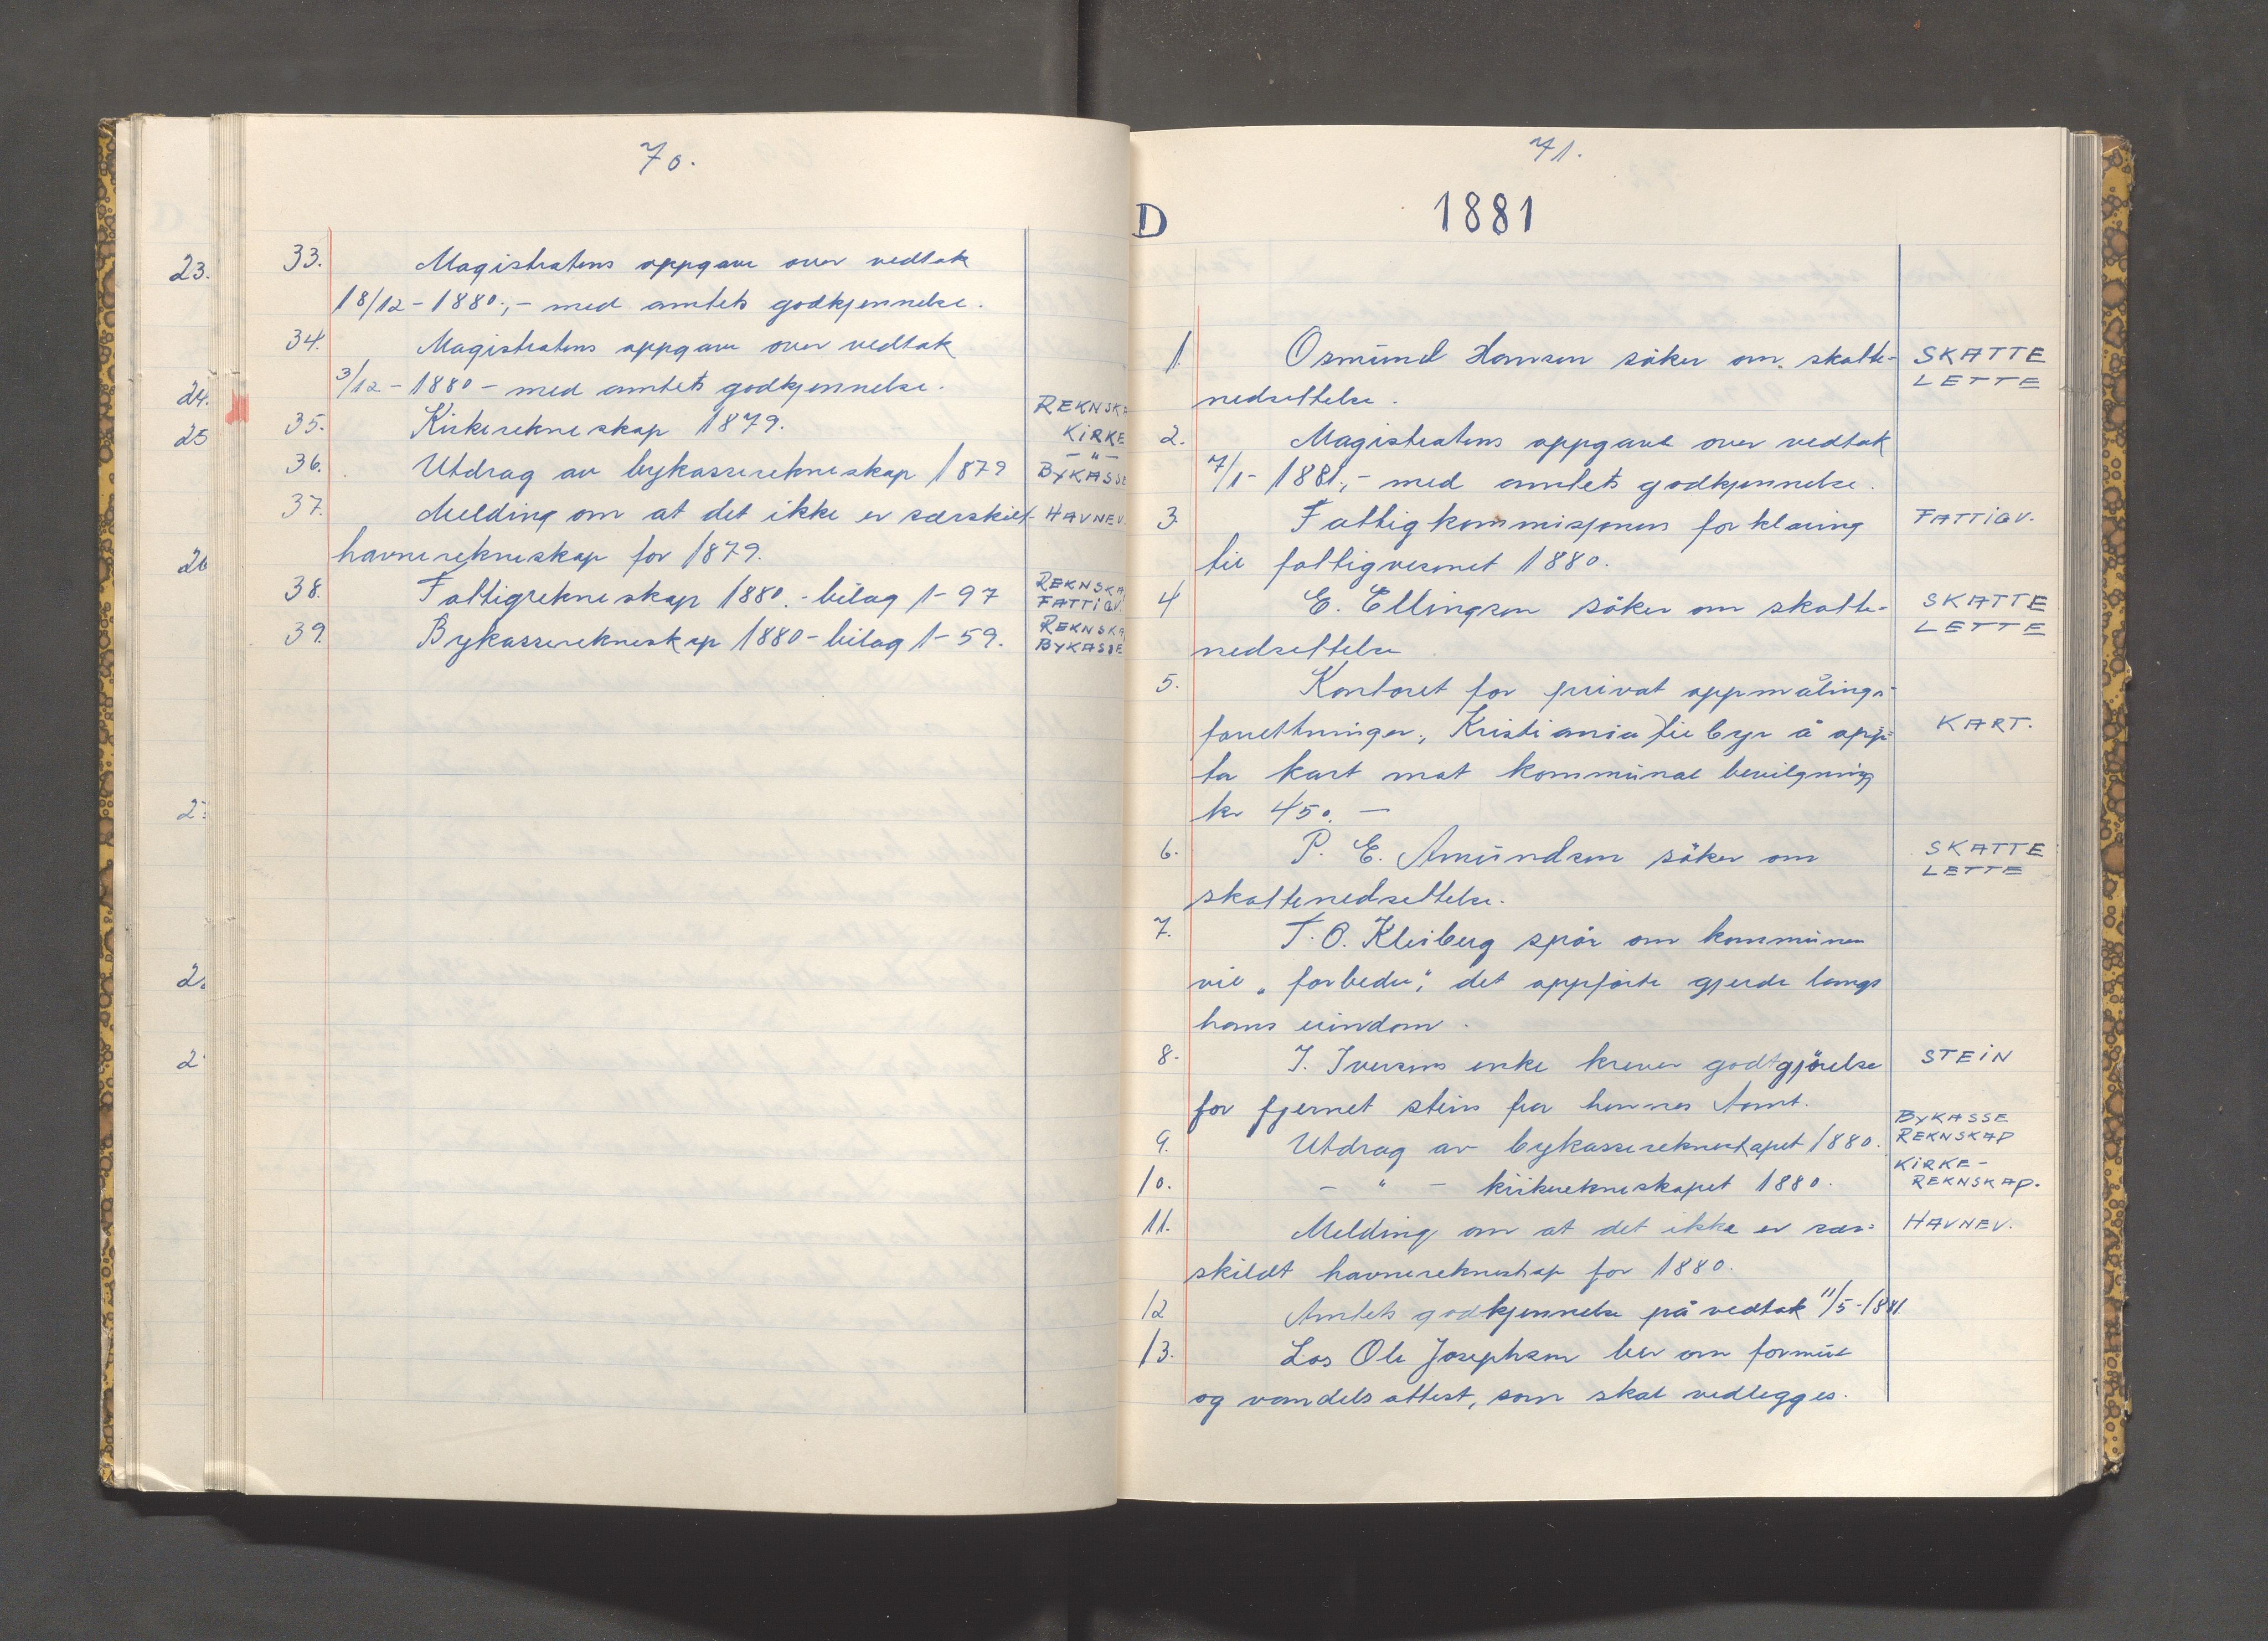 70.
23.
24.
25
26
33. Magistratens oppgave over vedtak
18/12 - 1880., - med amtets godkjennelse.
34. Magistratens oppgave over vedtak
3/12 - 1880 - med amtets godkjennelse.
35. Kirkerekneskap 1879. REKNSKA KIRKE
36. Utdrag av bykasserekneskap 1879 - " - BYKASSE
37. Melding om at det ikke er særskilt HAVNEV.
havnerekneskap for 1879.
38. Fattigrekneskap 1880. - bilag 1-97 REKNSKA FATTIGV.
39. Bykasserekneskap 1880 - bilag 1-59. REKNSKA BYKASSE
71.
D 1881
1. Osmund Hansen söker om skatte- SKATTE
nedsettelse. LETTE
2. Magistratens oppgave over vedtak
7/1 - 1881., - med amtets godkjennelse.
3. Fattigkommisjonens forklaring FATTIGV.
til fattigvesenet 1880.
4 E. Ellingsen söker om skatte- SKATTE
nedsettelse LETTE
5. Kontoret for privat oppmålings-
forrettninger, Kristiania tilbyr å opp- KART.
ta kart mot kommunal bevilgning
kr 450. —
6. P. E. Amundsen söker om SKATTE
skattenedsettelse. LETTE
7. T. O. Kleiberg spör om kommunen
vil „forbedre“, det oppförte gjerde langs
hans eiendom.
8. J. Iversens enke krever godtgjörelse STEIN
for fjernet stein fra hennes tomt.
9. Utdrag av bykasserekneskapet 1880. BYKASSE REKNSKAP
10. - " - kirkerekneskapet 1880. KIRKE- REKNSKAP.
11. Melding om at det ikke er sær= HAVNEV.
skildt havnerekneskap for 1880.
12 Amtets godkjennelse på vedtak 11/5-1881
13. Los Ole Josephsen ber om formue
og vandelsattest, som skal vedlegges.